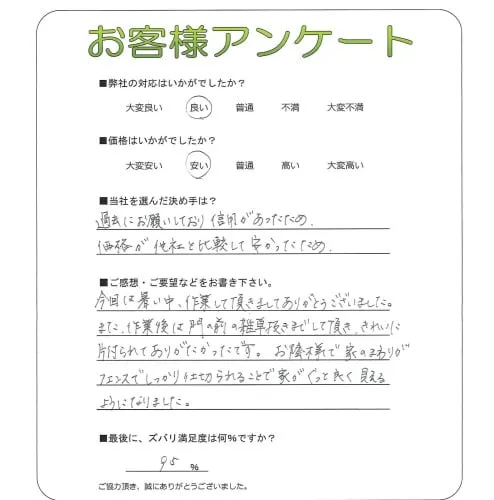 お客様アンケート
■弊社の対応はいかがでしたか?
大変良い 良い 普通 不満 大変不満
■価格はいかがでしたか?
大変安い 安い 普通 高い 大変高い
■当社を選んだ決め手は?
過去にお願いしており信用があったため、
価格が他社と比較して安かったため
■ご感想・ご要望などをお書き下さい。
今回は暑い中、作業して頂きましてありがとうございました。
また、作業後は門の前の雑草抜きまでして頂き、きれいに
片付られてありがたかったです。お陰様で家のまわりが
フェンスでしっかり仕切られることで家がぐっと良く見える
ようになりました。
■最後に、ズバリ満足度は何%ですか?
95 %
ご協力頂き、誠にありがとうございました。